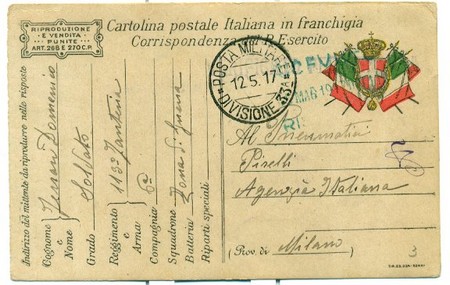 RIPRODUZIONE
E VENDITA
PUNITE
ART. 266 E 270 C.P.
Cartolina postale Italiana in franchigia
Corrispondenza del R. Esercito
POSTA MILITARE
12.5.17
DIVISIONE 33ª
Indirizzo del mittente da riprodurre nelle risposte
Cognome e Nome Domenico
Grado Soldato
Reggimento e Arma 113º Fanteria
Compagnia 6ª
Squadrone
Batteria Zona di guerra
Riparti speciali
Al Pneumatici
Pirelli
Agenzia Italiana
(Prov. di Milano
3